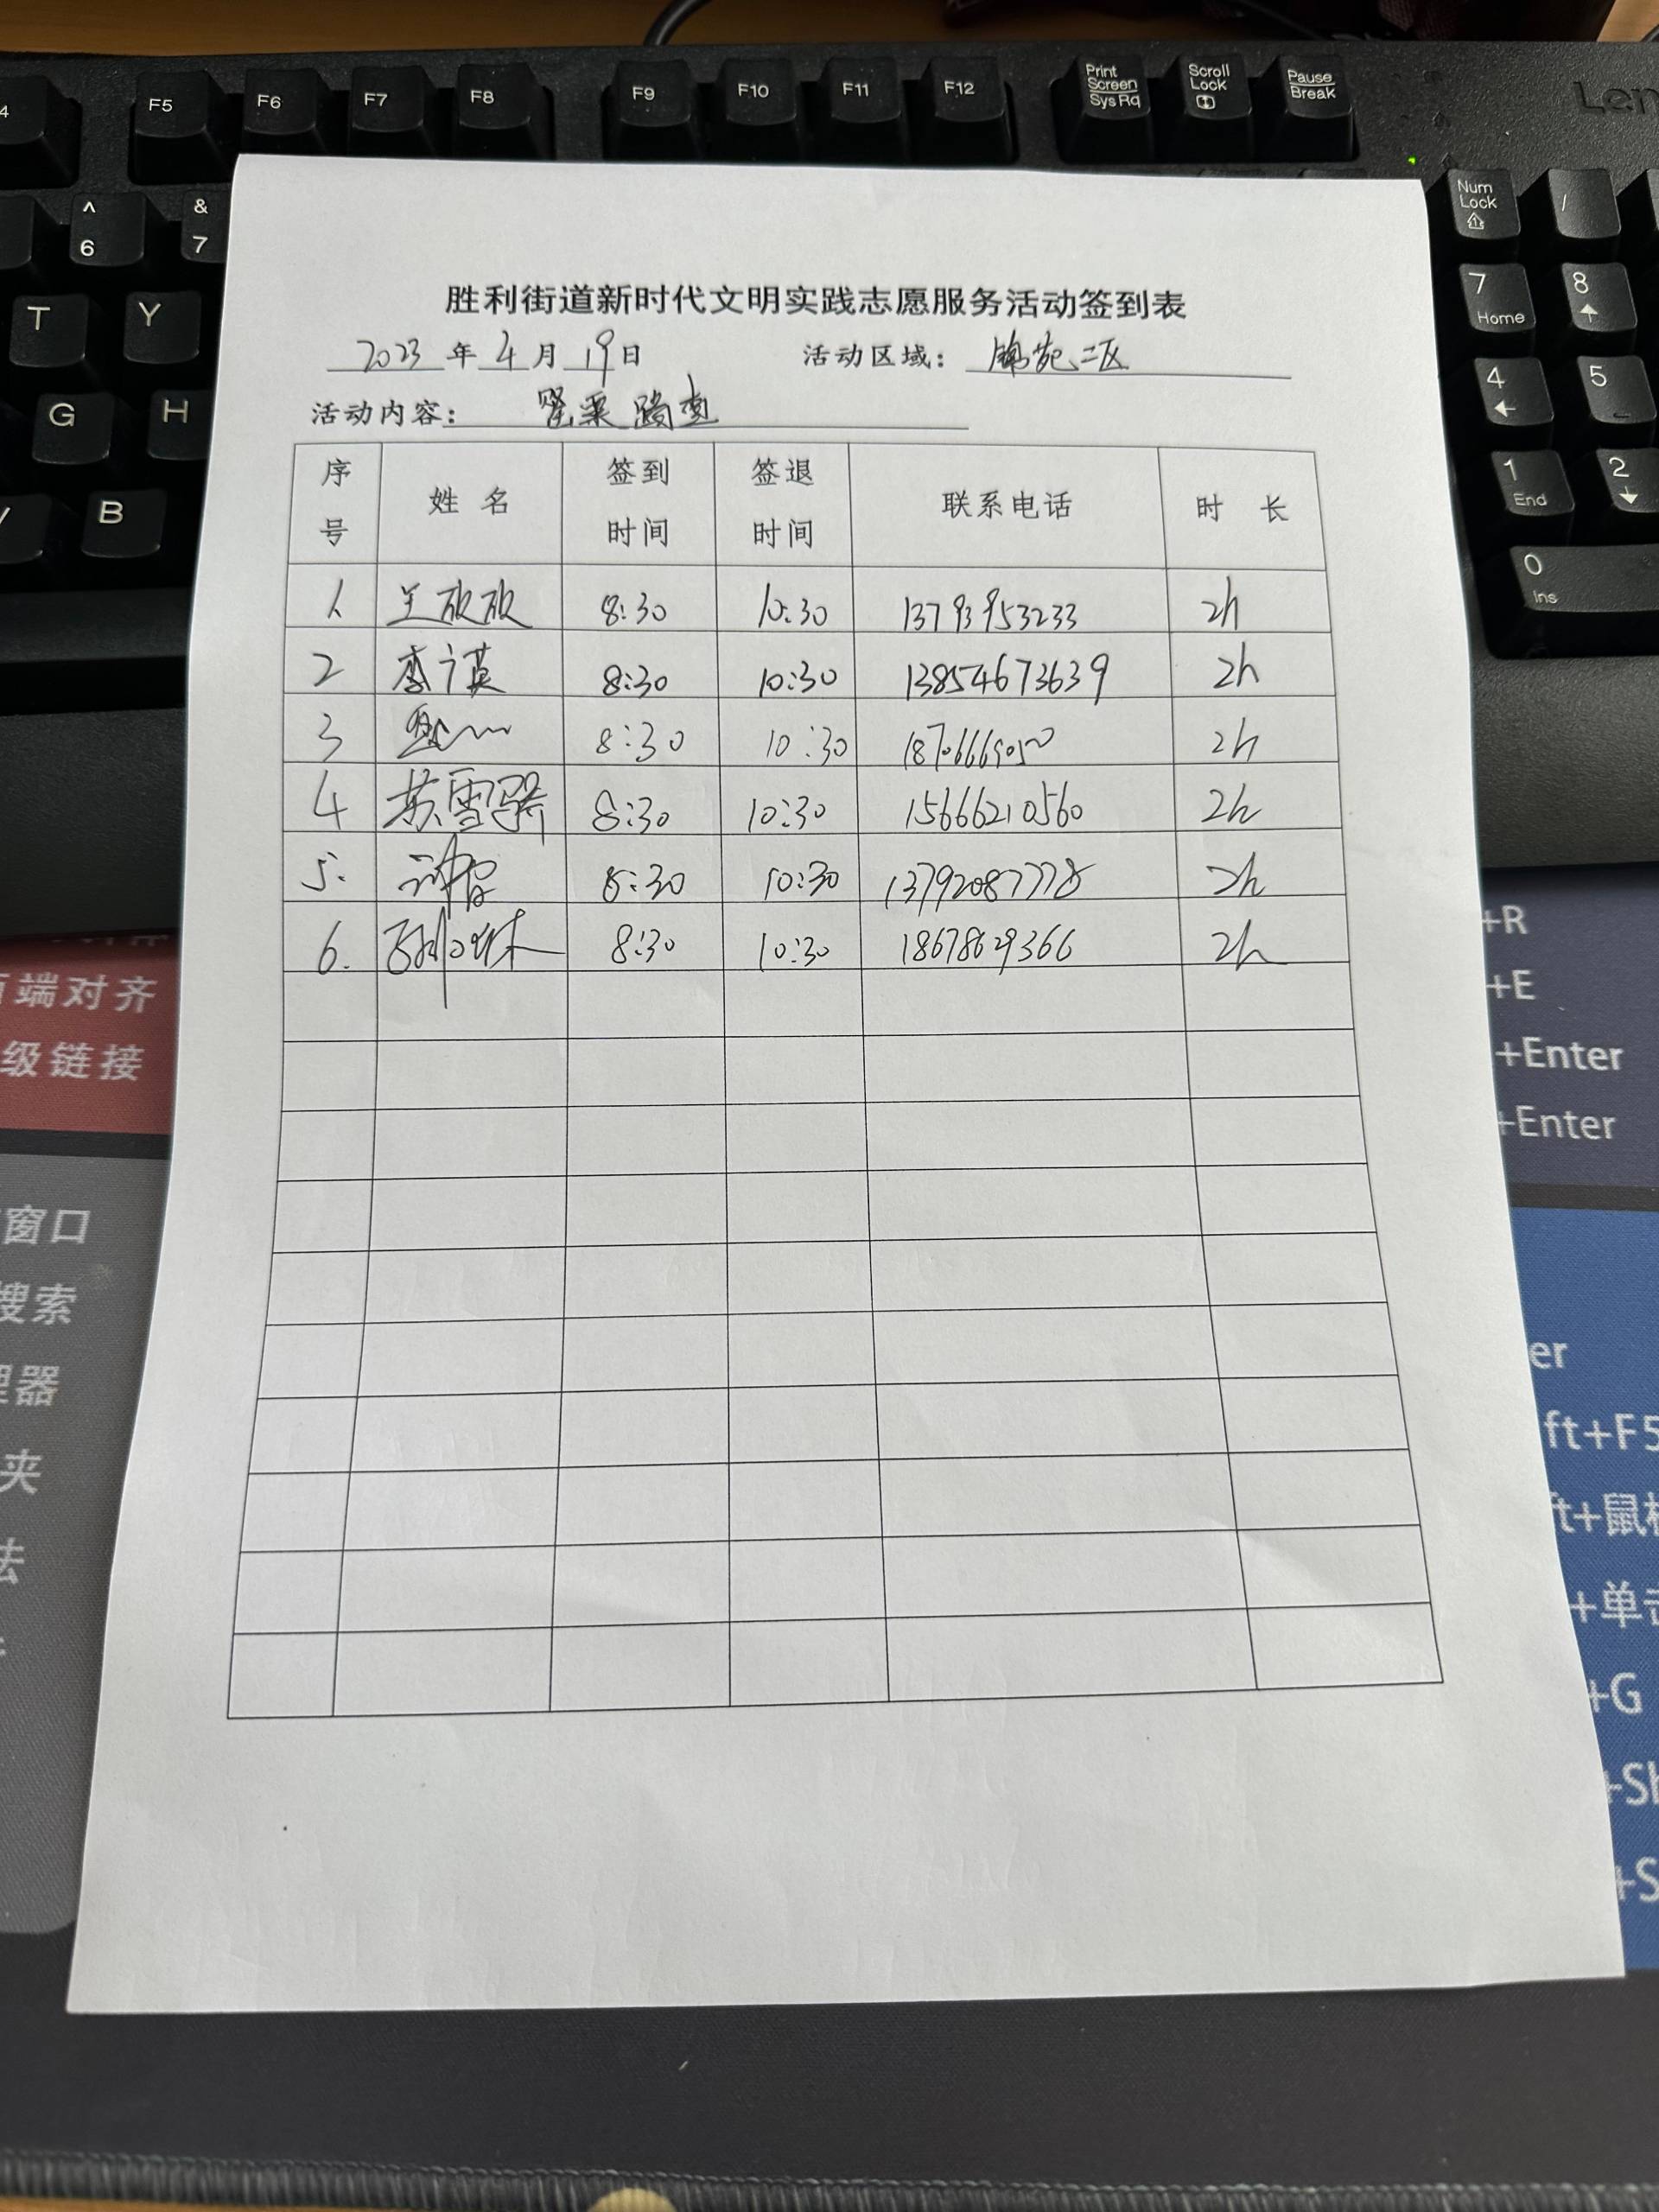 F5 F6 F7 F8 F9 F10 F11 F12 Print Screen SysRq Scroll Lock Pause Break
Len
^ 6 & 7
Num Lock /
T Y
7 Home 8
G H
4 5
B
1 End 2
0 Ins
胜利街道新时代文明实践志愿服务活动签到表
2023 年 4 月 19 日 活动区域: 锦苑二区
活动内容: 罂粟踏查
序号 姓名 签到时间 签退时间 联系电话 时长
1. 8:30 10:30 13793953233 2h
2 8:30 10:30 13854673639 2h
3 8:30 10:30 2h
4 8:30 10:30 15666210560 2h
5. 8:30 10:30 13792087778 2h
6. 8:30 10:30 18678629366 2h
端对齐
级链接
窗口
搜索
理器
夹
法
+R
+E
+Enter
+Enter
er
ft+F5
+单击
+G